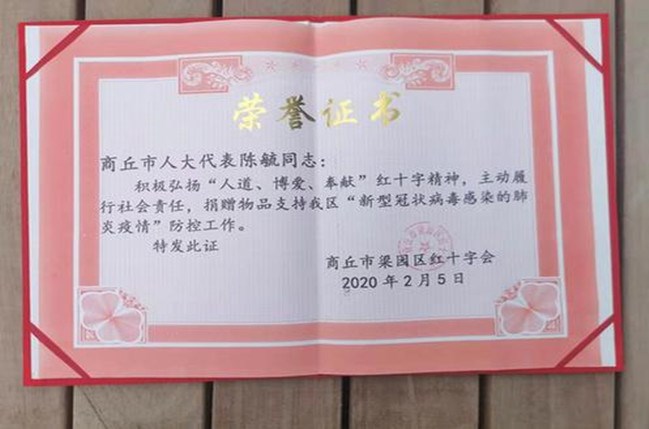 荣誉证书
商丘市人大代表陈毓同志：
积极弘扬“人道、博爱、奉献”红十字精神，主动履
行社会责任，捐赠物品支持我区“新型冠状病毒感染的肺
炎疫情”防控工作。
特发此证
商丘市梁园区红十字会
2020年2月5日